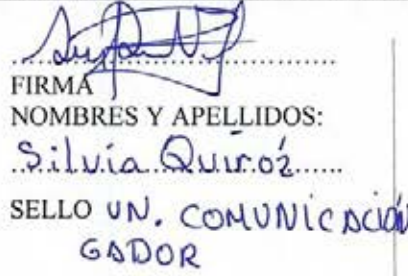 FIRMA
NOMBRES Y APELLIDOS:
Silvia Quiroz
SELLO UN. COMUNICACIÓN
GADOR